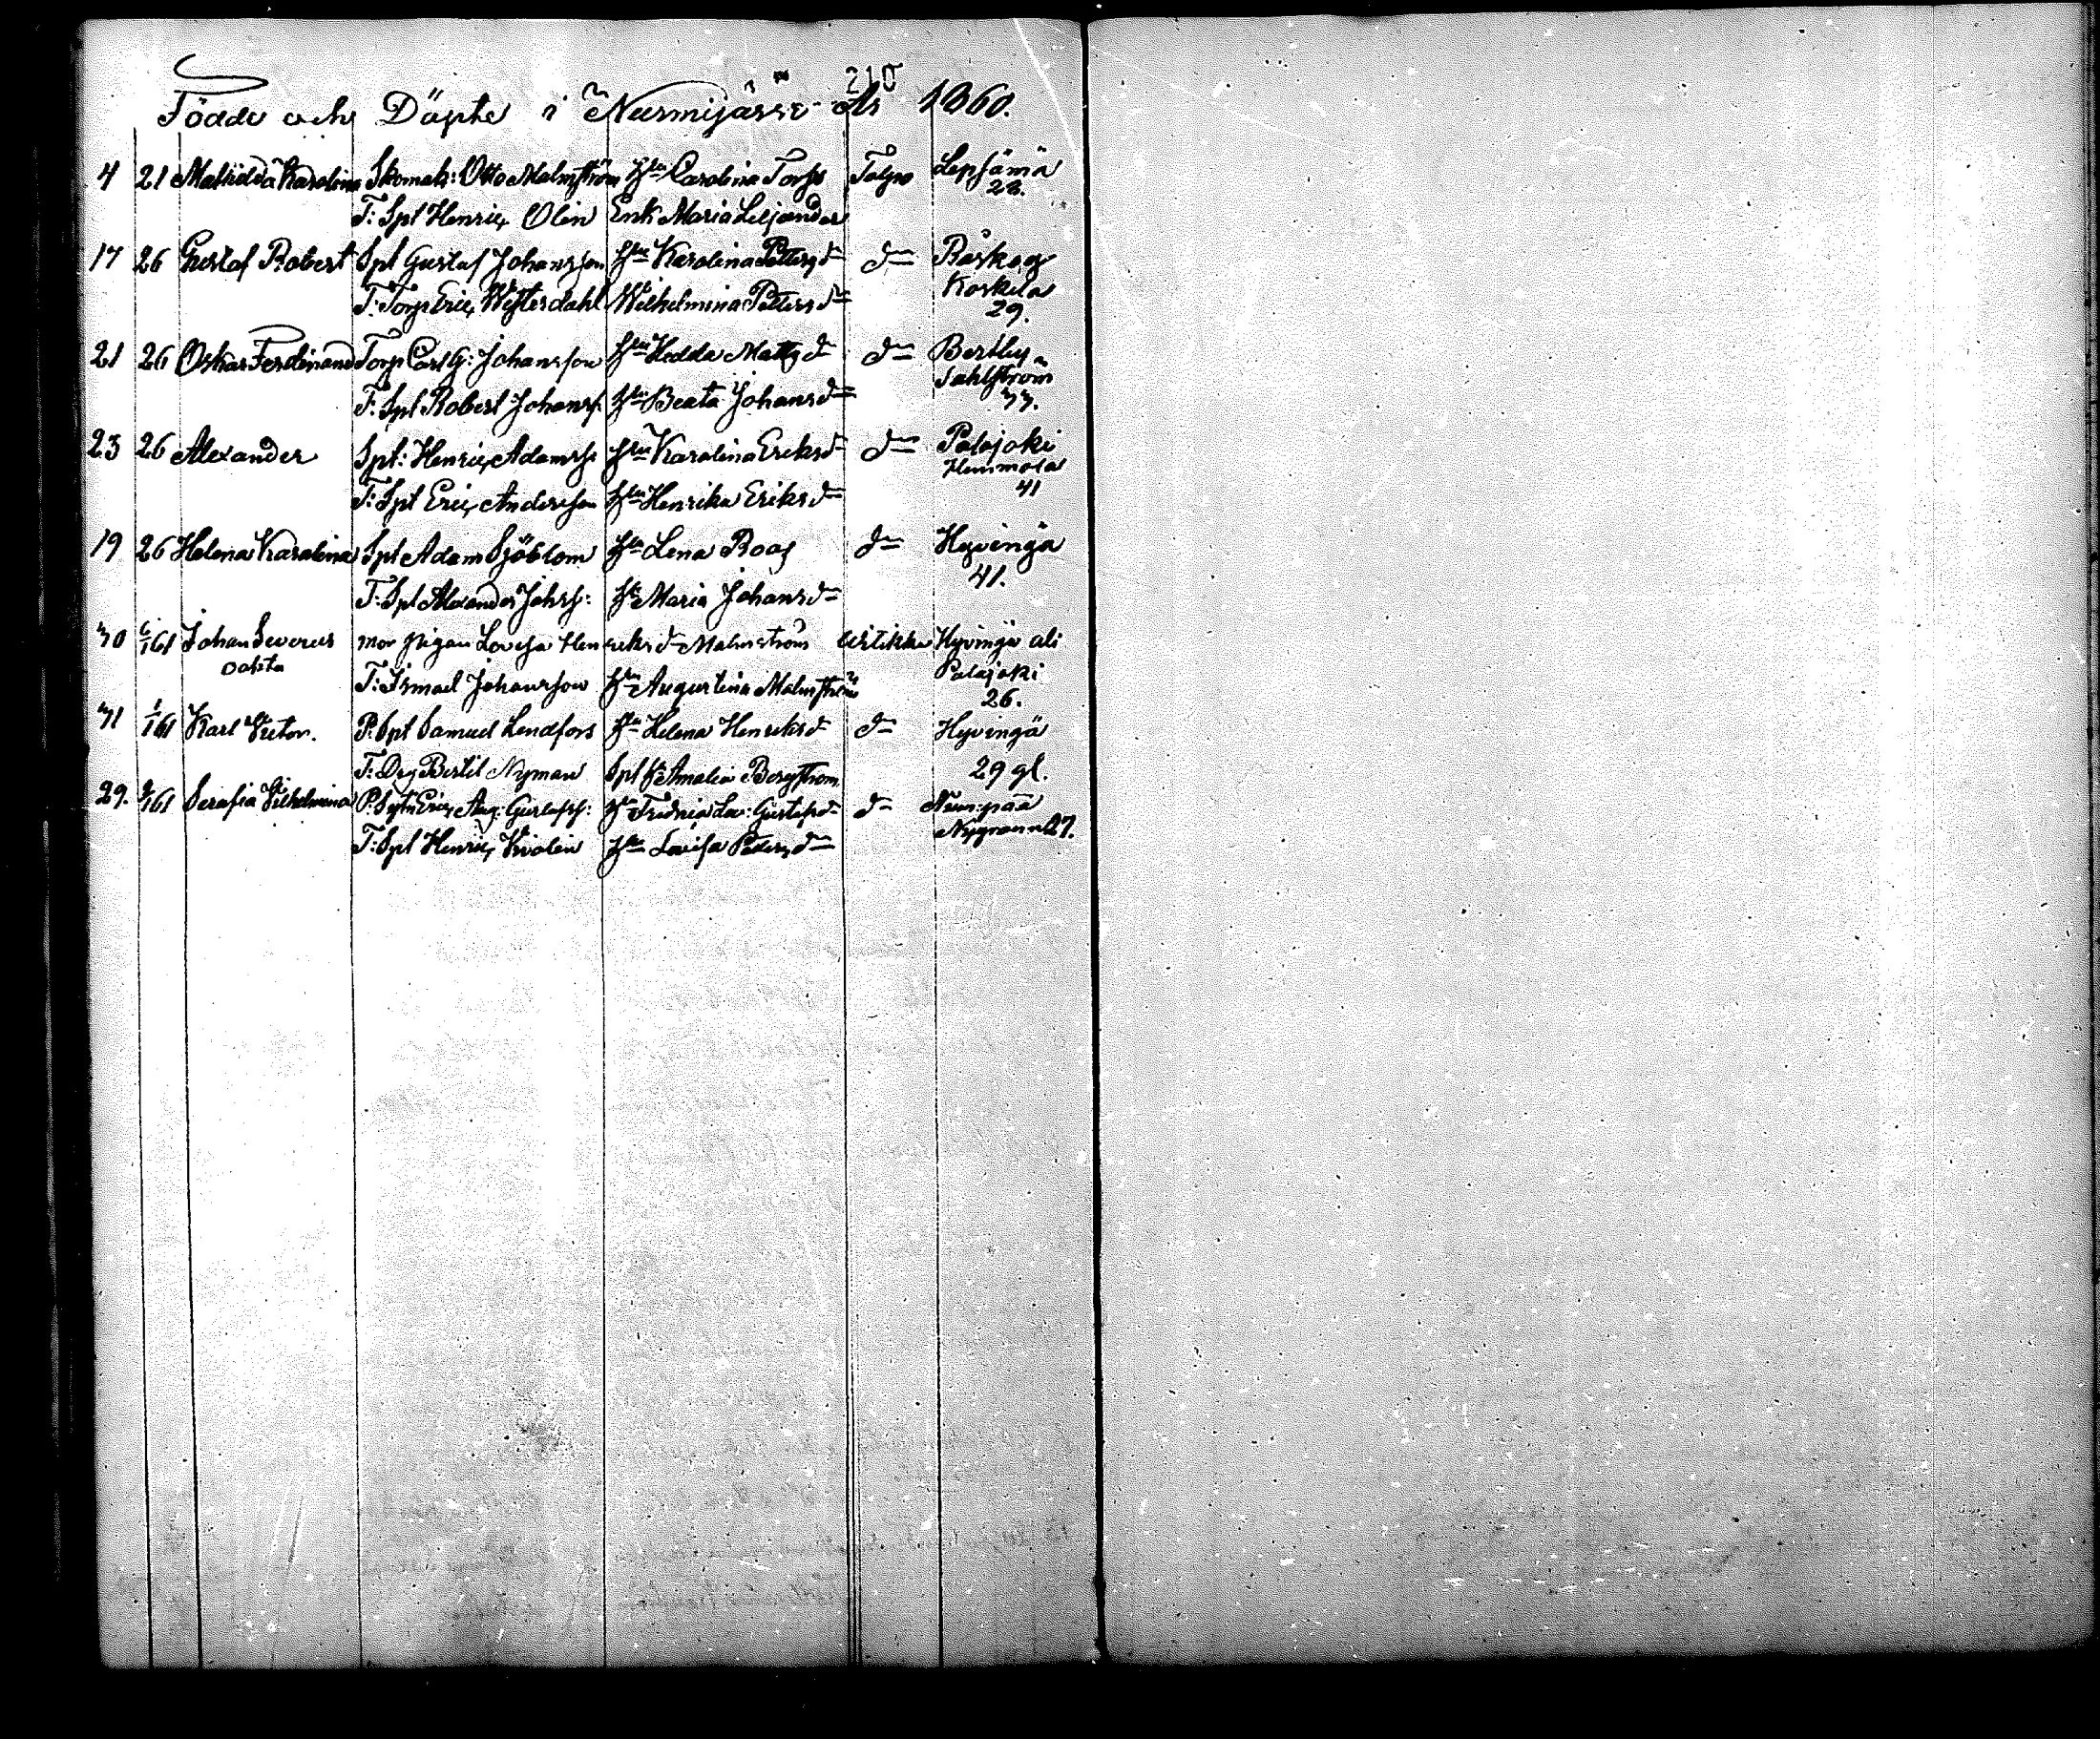 210
Födde och Döpte i Nurmijärvi År 1860.
4 21 Mathilda Karolina Skomak: Otto Malmström Hu Carolina Torps Talpo Lepsämä
28.
T: Spl Henric Olin Enk Maria Liljander
17 26 Gustaf Robert Spl Gustaf Johansson Hu Karolina Petters dr dn Råskog
T: Torp Eric Westerdahl Wilhelmina Petters dr Koskela
29.
21 26 Oskar Ferdinand Torp Carl G: Johansson Hu Hedda Matts dr dn Bertby
Sahlström
T: Spl Robert Johanss Hu Beata Johans dr 33.
23 26 Alexander Spl: Henric Adamss Hu Karolina Eriks dr dn Palojoki
Hemmola
T: Spl Eric Andersson Hu Henrika Eriks dr 41
19 26 Helena Karolina Spl Adam Sjöblom Hu Lena Roos dn Hyvingä
41.
T: Spl Alexander Johss: Hu Maria Johans dr
30 6/1 61 Johan Severus mor pigan Lovisa Henriks dr Malmström Hyvingä ali
oäkta Palojoki
T: Ismael Johansson Hu Augustina Malmström 26.
31 1/1 61 Karl Viktor. P. Spl Samuel Lindfors Hu Helena Henriks dr dn Hyvingä
T: Drg Bertil Nyman Spl h Amalia Bergström 29 gl.
29. /1 61 Serafia Vilhelmina P. Sytn Eric Aug: Gustafss: Hu Fredrica Lov: Gustafs dr dn Num:pää
Nygrann 27.
T: Spl Henric Violin Hu Lovisa Peters dr